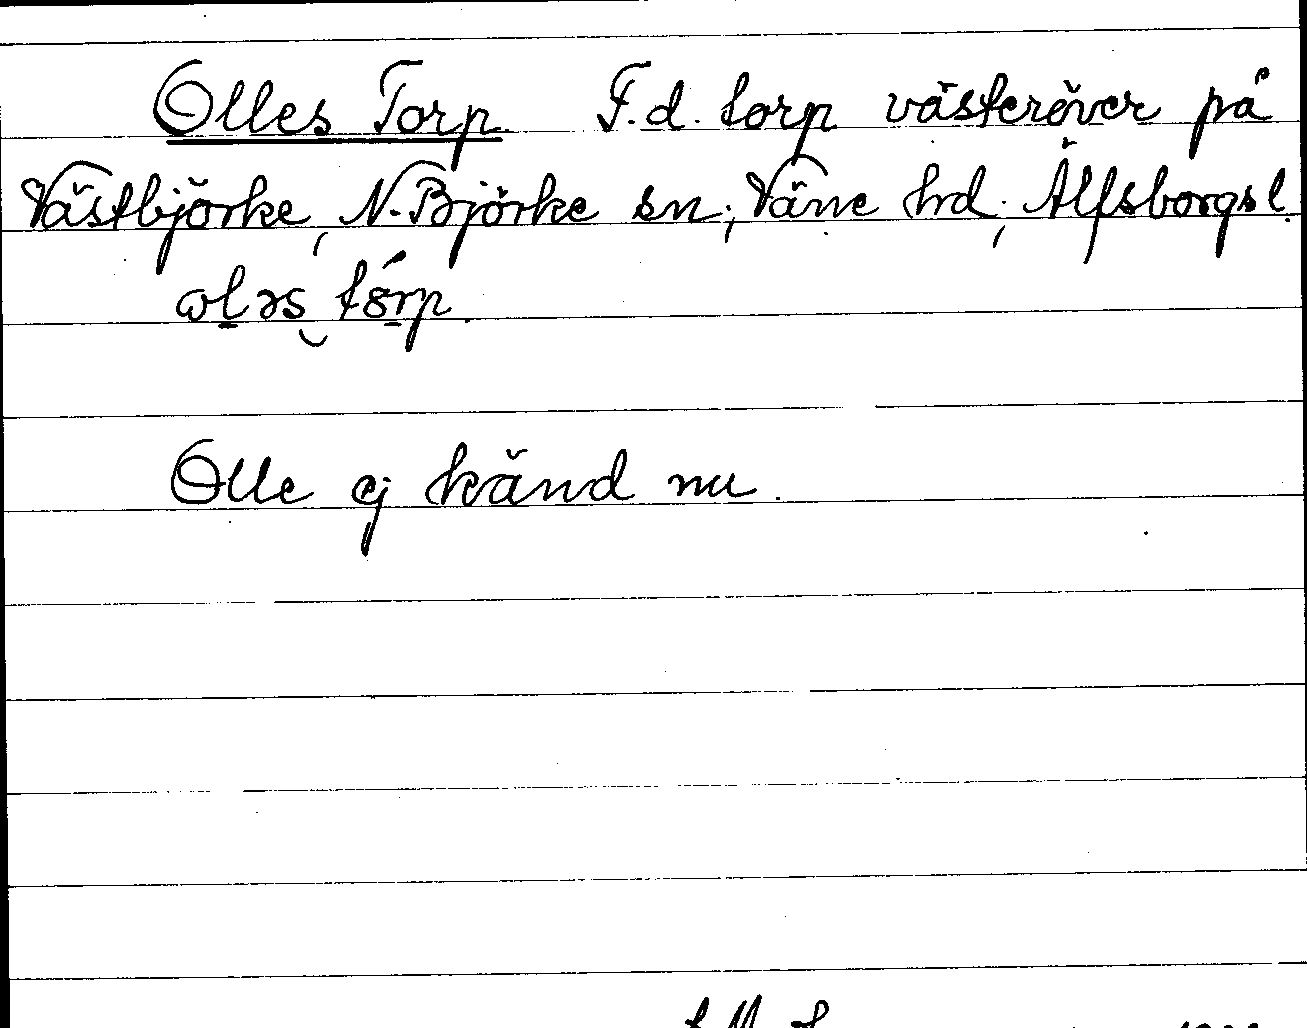 Olles Torp. F.d. torp västeröver på
Västbjörke, N. Björke sn; Väne hd, Älfsborgs l.
Olle ej känd nu.